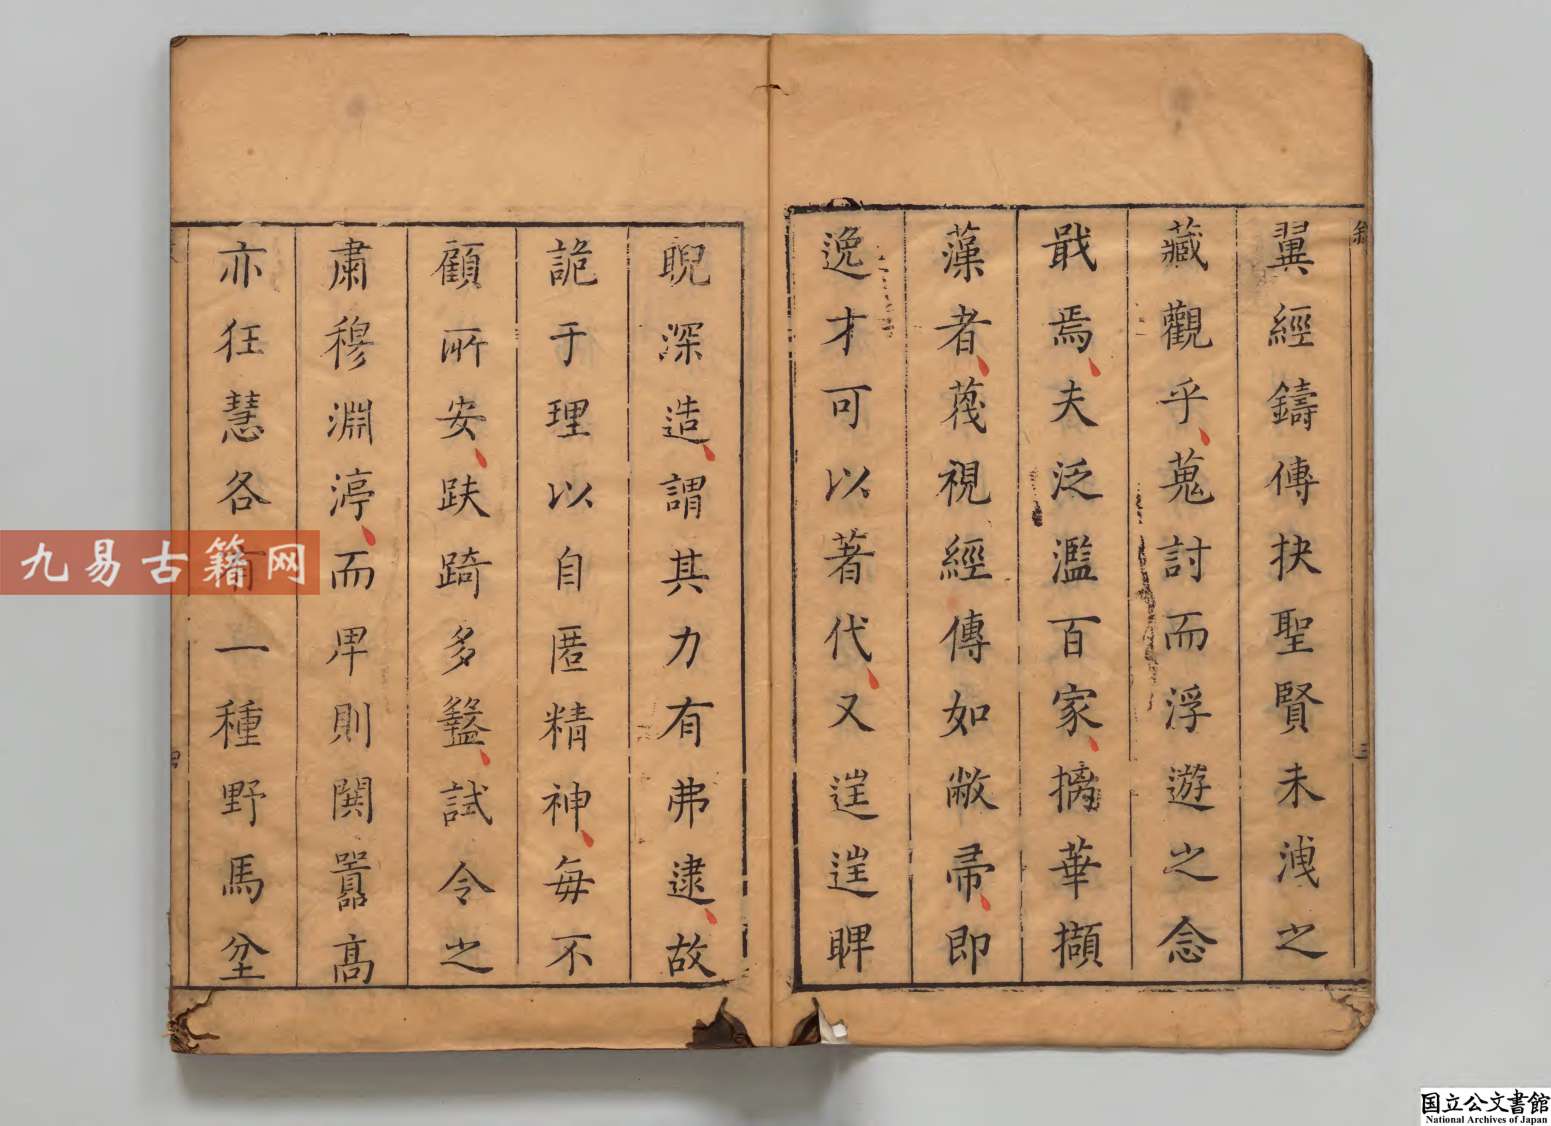 翼經鑄傳抉聖賢未洩之
藏觀乎蒐討而浮遊之念
戢焉夫泛濫百家摛華擷
藻者蔑視經傳如敝帚即
逸才可以著代又逞逞睥
睨深造謂其力有弗逮故
詭于理以自匿精神每不
顧所安趺踦多盭試令之
肅穆淵渟而卑則闃囂高
亦狂慧各有一種野馬坌
三
九易古籍网
国立公文書館
National Archives of Japan